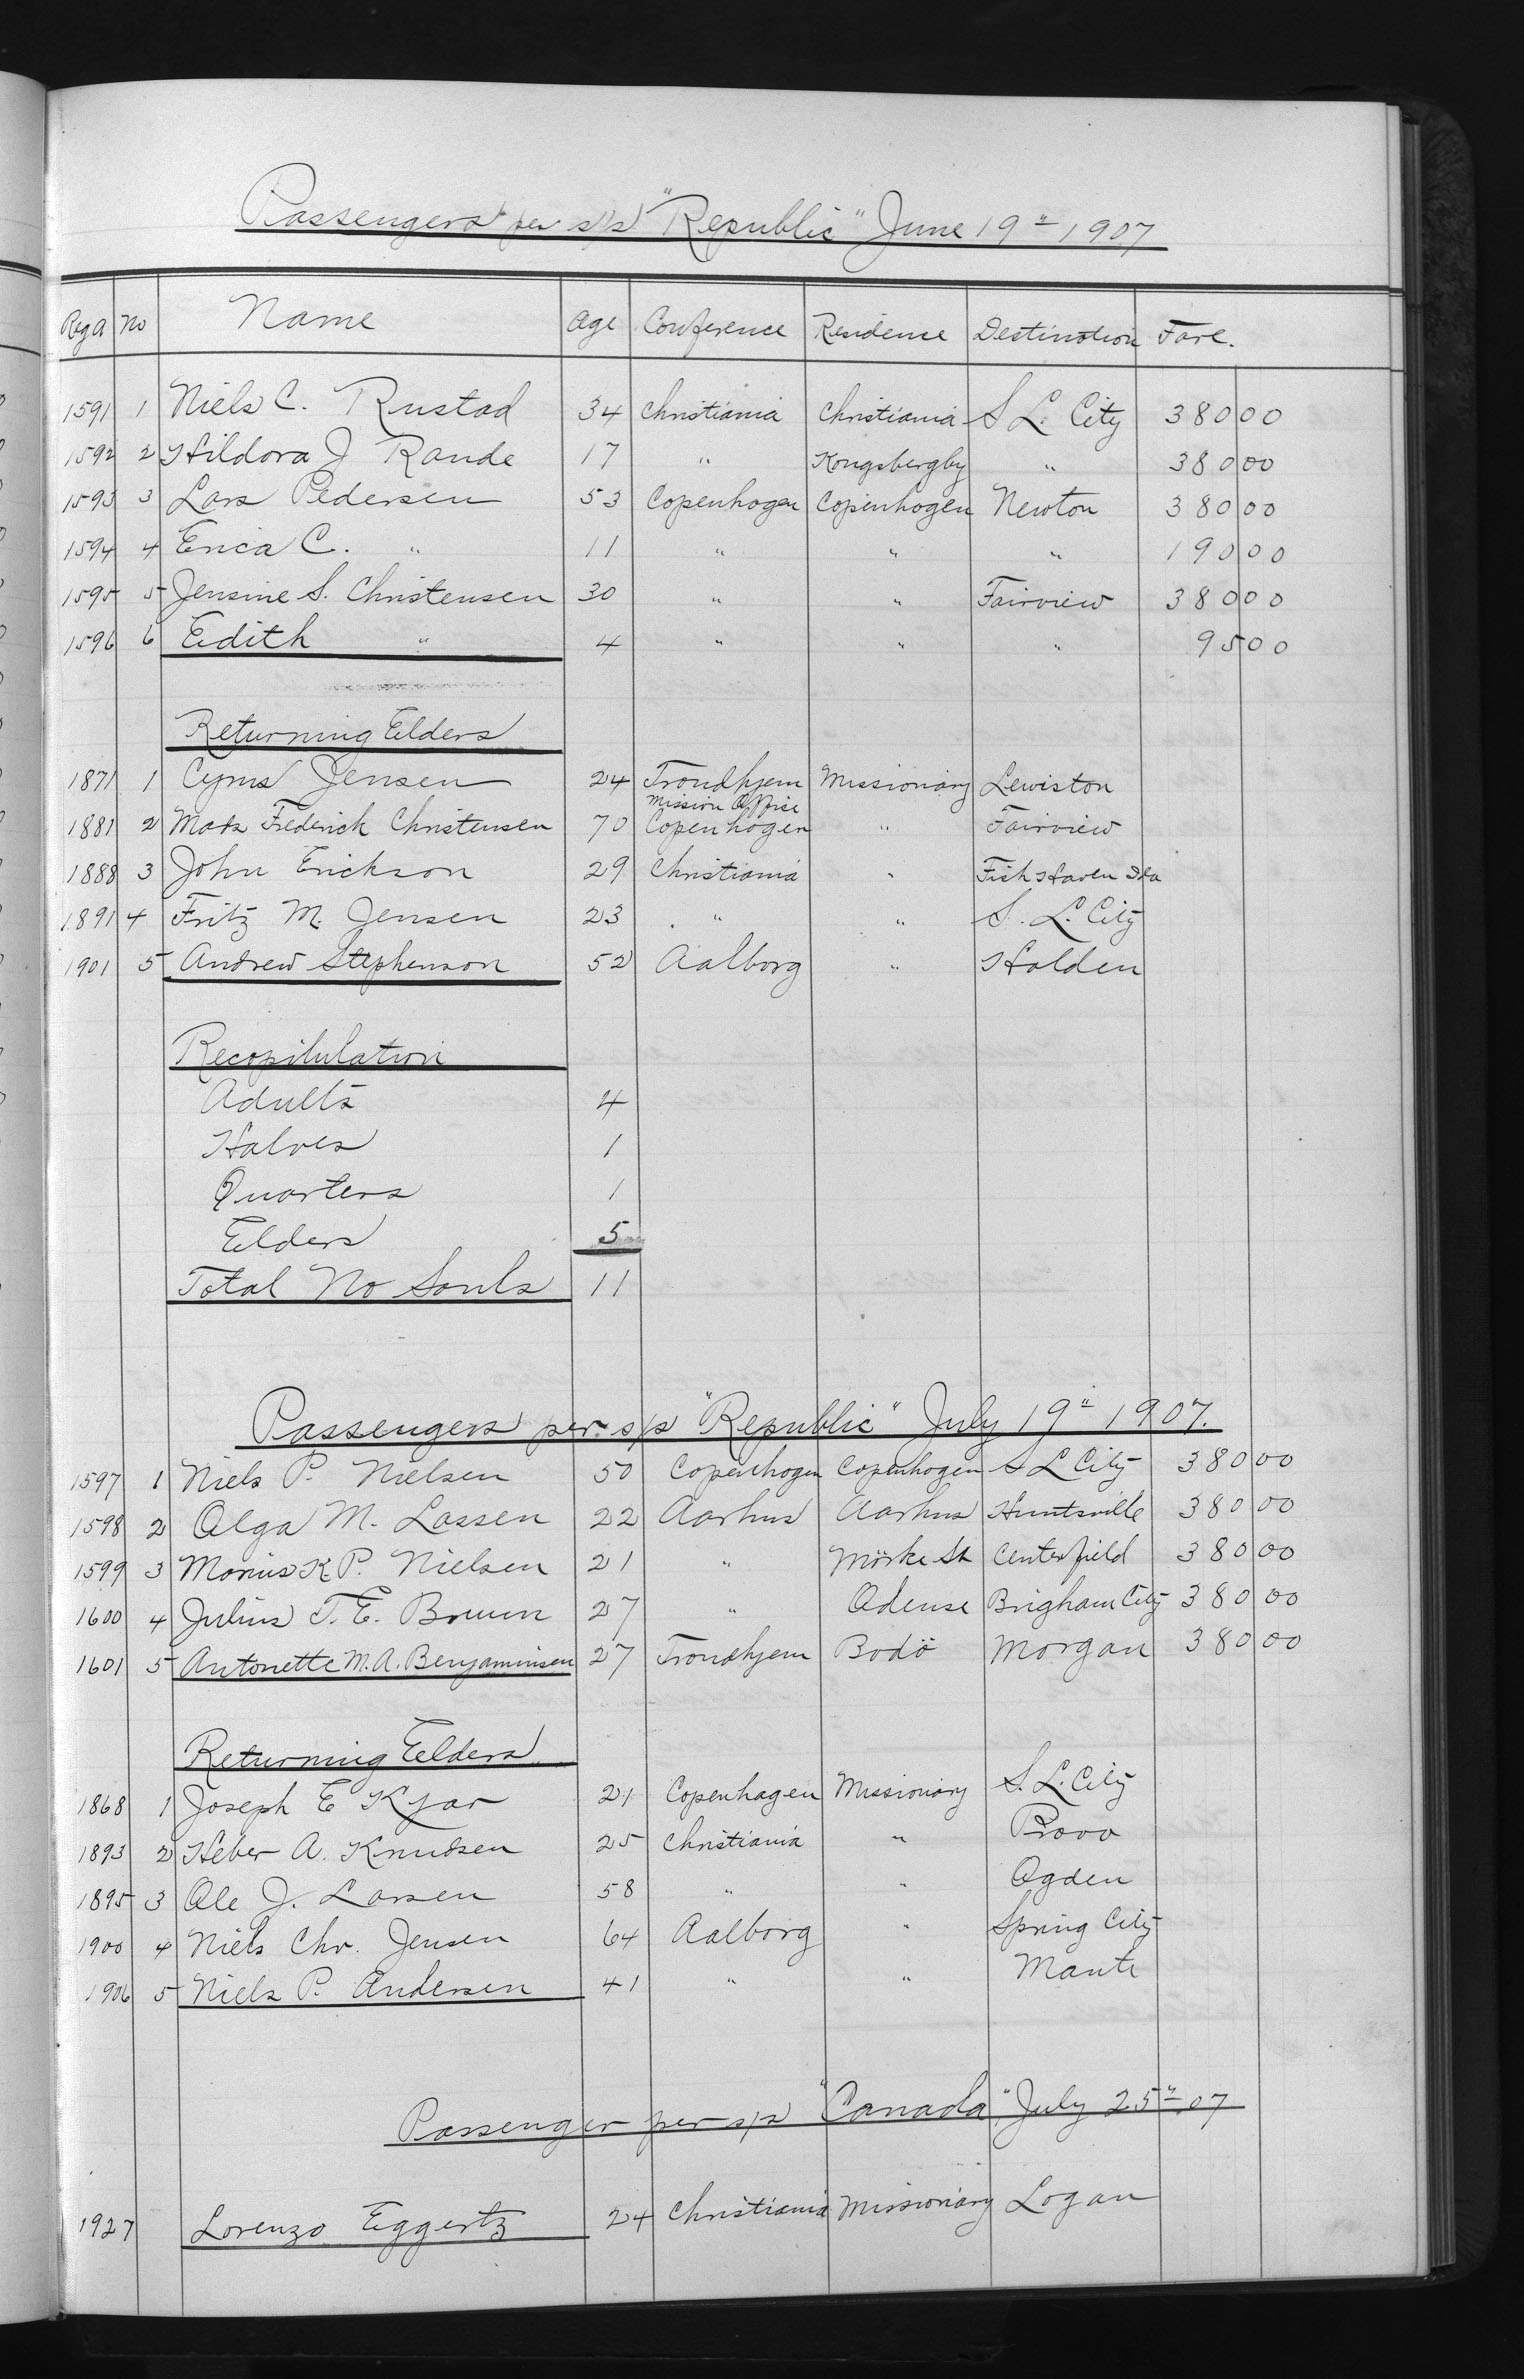 Passengers per s/s "Republic" June 19" 1907
Reg a No Name Age Conference Residence Destination Fare.
1591 1 Niels C. Rustad 34 Christiania Christiania S L. City 380 00
1592 2 Hildora J Rande 17 " Kongsbergby " 380 00
1593 3 Lars Pedersen 53 Copenhagen Copenhagen Newton 380 00
1594 4 Erica C. " 11 " " " 190 00
1595 5 Jensine S. Christensen 30 " " Fairview 380 00
1596 6 Edith " 4 " " " 95 00
Returning Elders
1871 1 Cyrus Jensen 24 Trondhjem Missionary Lewiston
Mission Office
1881 2 Mads Frederick Christensen 70 Copenhagen " Fairview
1888 3 John Erickson 29 Christiania " Fish Haven Ida
1891 4 Fritz M. Jensen 23 " " S. L. City
1901 5 Andrew Stephenson 52 Aalborg " Holden
Recapitulation
Adults 4
Halves 1
Quarters 1
Elders 5
Total No Souls 11
Passengers per s/s "Republic" July 19" 1907.
1597 1 Niels P. Nielsen 50 Copenhagen Copenhagen S L City 380 00
1598 2 Olga M. Lassen 22 Aarhus Aarhus Huntsville 380 00
1599 3 Marius K. P. Nielsen 21 " Mörke St Centerfield 380 00
1600 4 Julius T. E. Bruun 27 " Odense Brigham City 380 00
1601 5 Antonette M. A. Benjaminsen 27 Trondhjem Bodö Morgan 380 00
Returning Elders
1868 1 Joseph E Kjar 21 Copenhagen Missionary S. L. City
1893 2 Heber A. Knudsen 25 Christiania " Provo
1895 3 Ole J. Larsen 58 " " Ogden
1900 4 Niels Chr. Jensen 64 Aalborg " Spring City
1906 5 Niels P. Andersen 41 " " Manti
Passenger per s/s "Canada" July 25" 07
1927 Lorenzo Eggertz 24 Christiania Missionary Logan